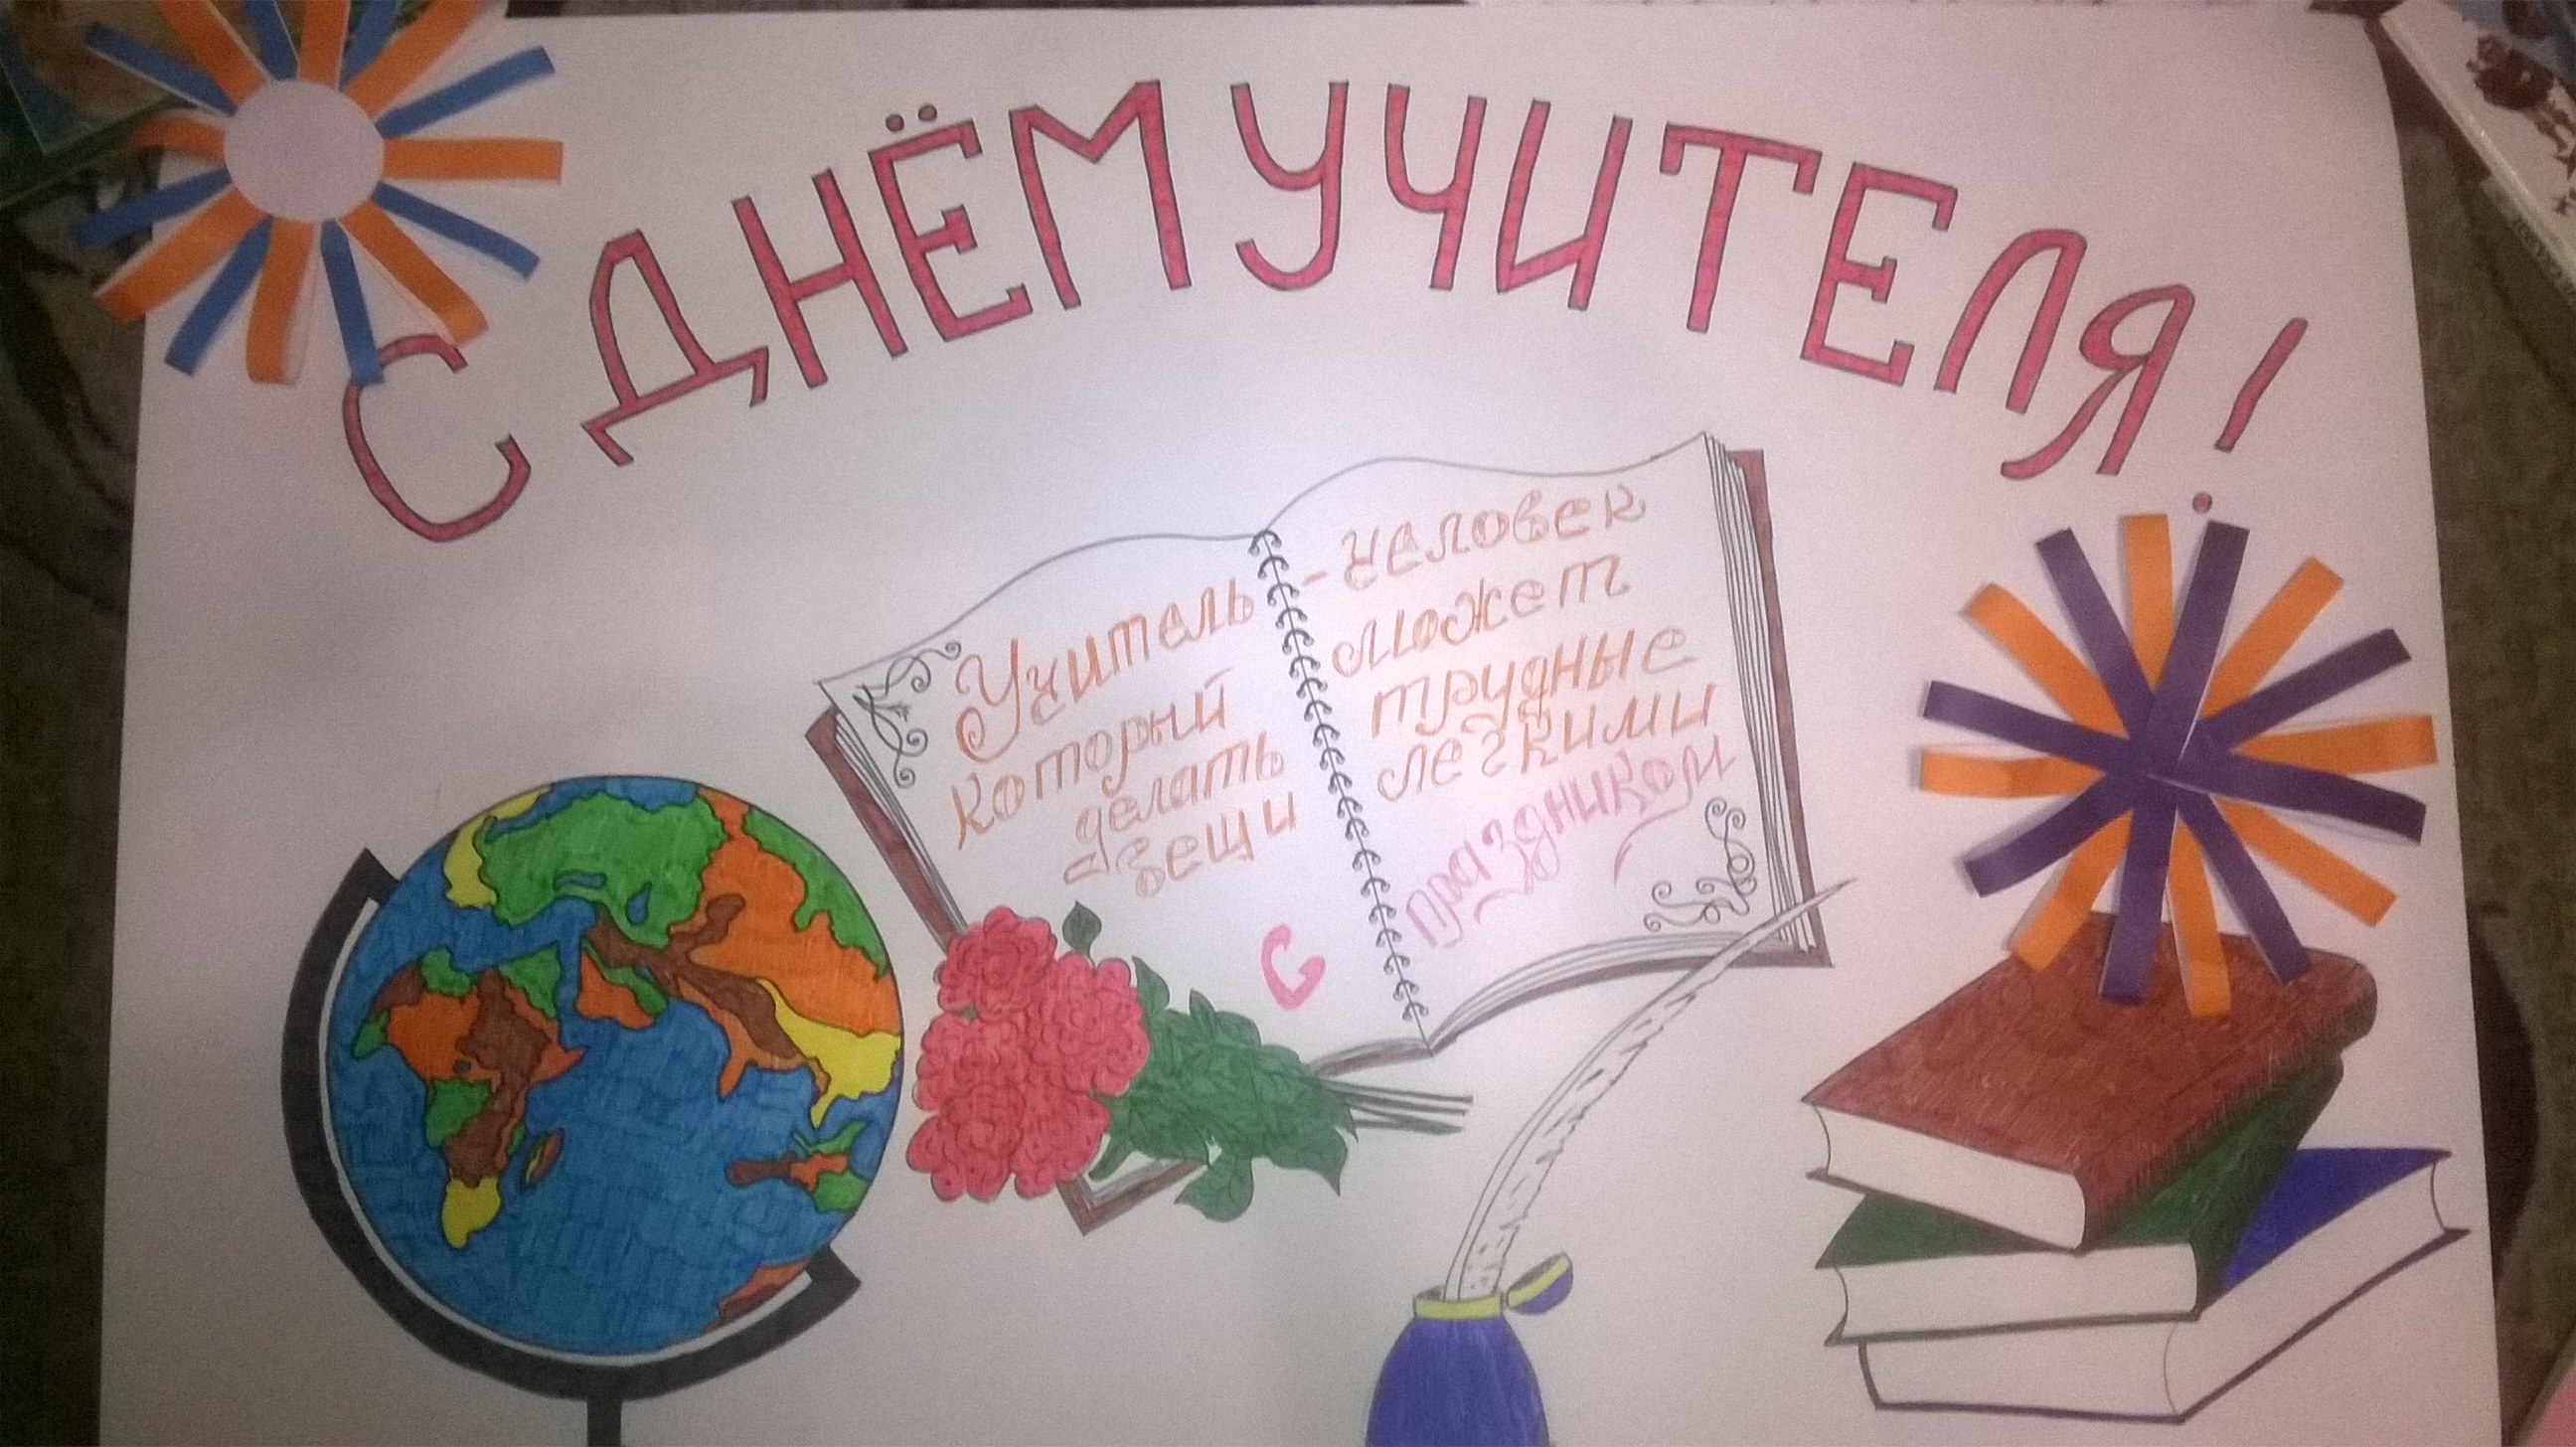 С ДНЁМ УЧИТЕЛЯ!
Учитель - человек
который может
делать трудные
вещи легкими
С праздником